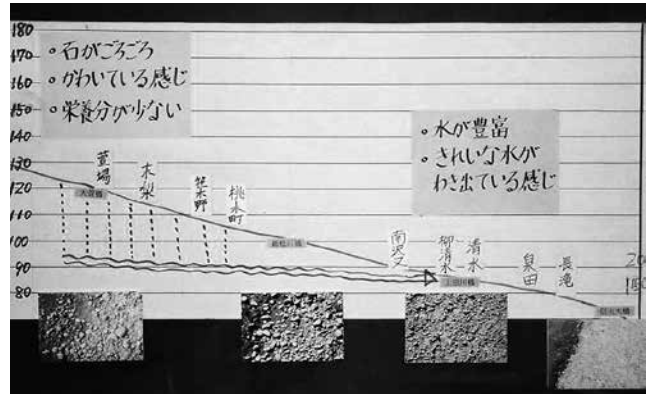 180
170
160
150
140
130
120
110
100
90
80
・石がごろごろ
・かわいている感じ
・栄養分が少ない
・水が豊富
・きれいな水が
わき出ている感じ
萱場
木梨
笹木野
桃木町
南沢又
御清水
清水
泉田
長滝